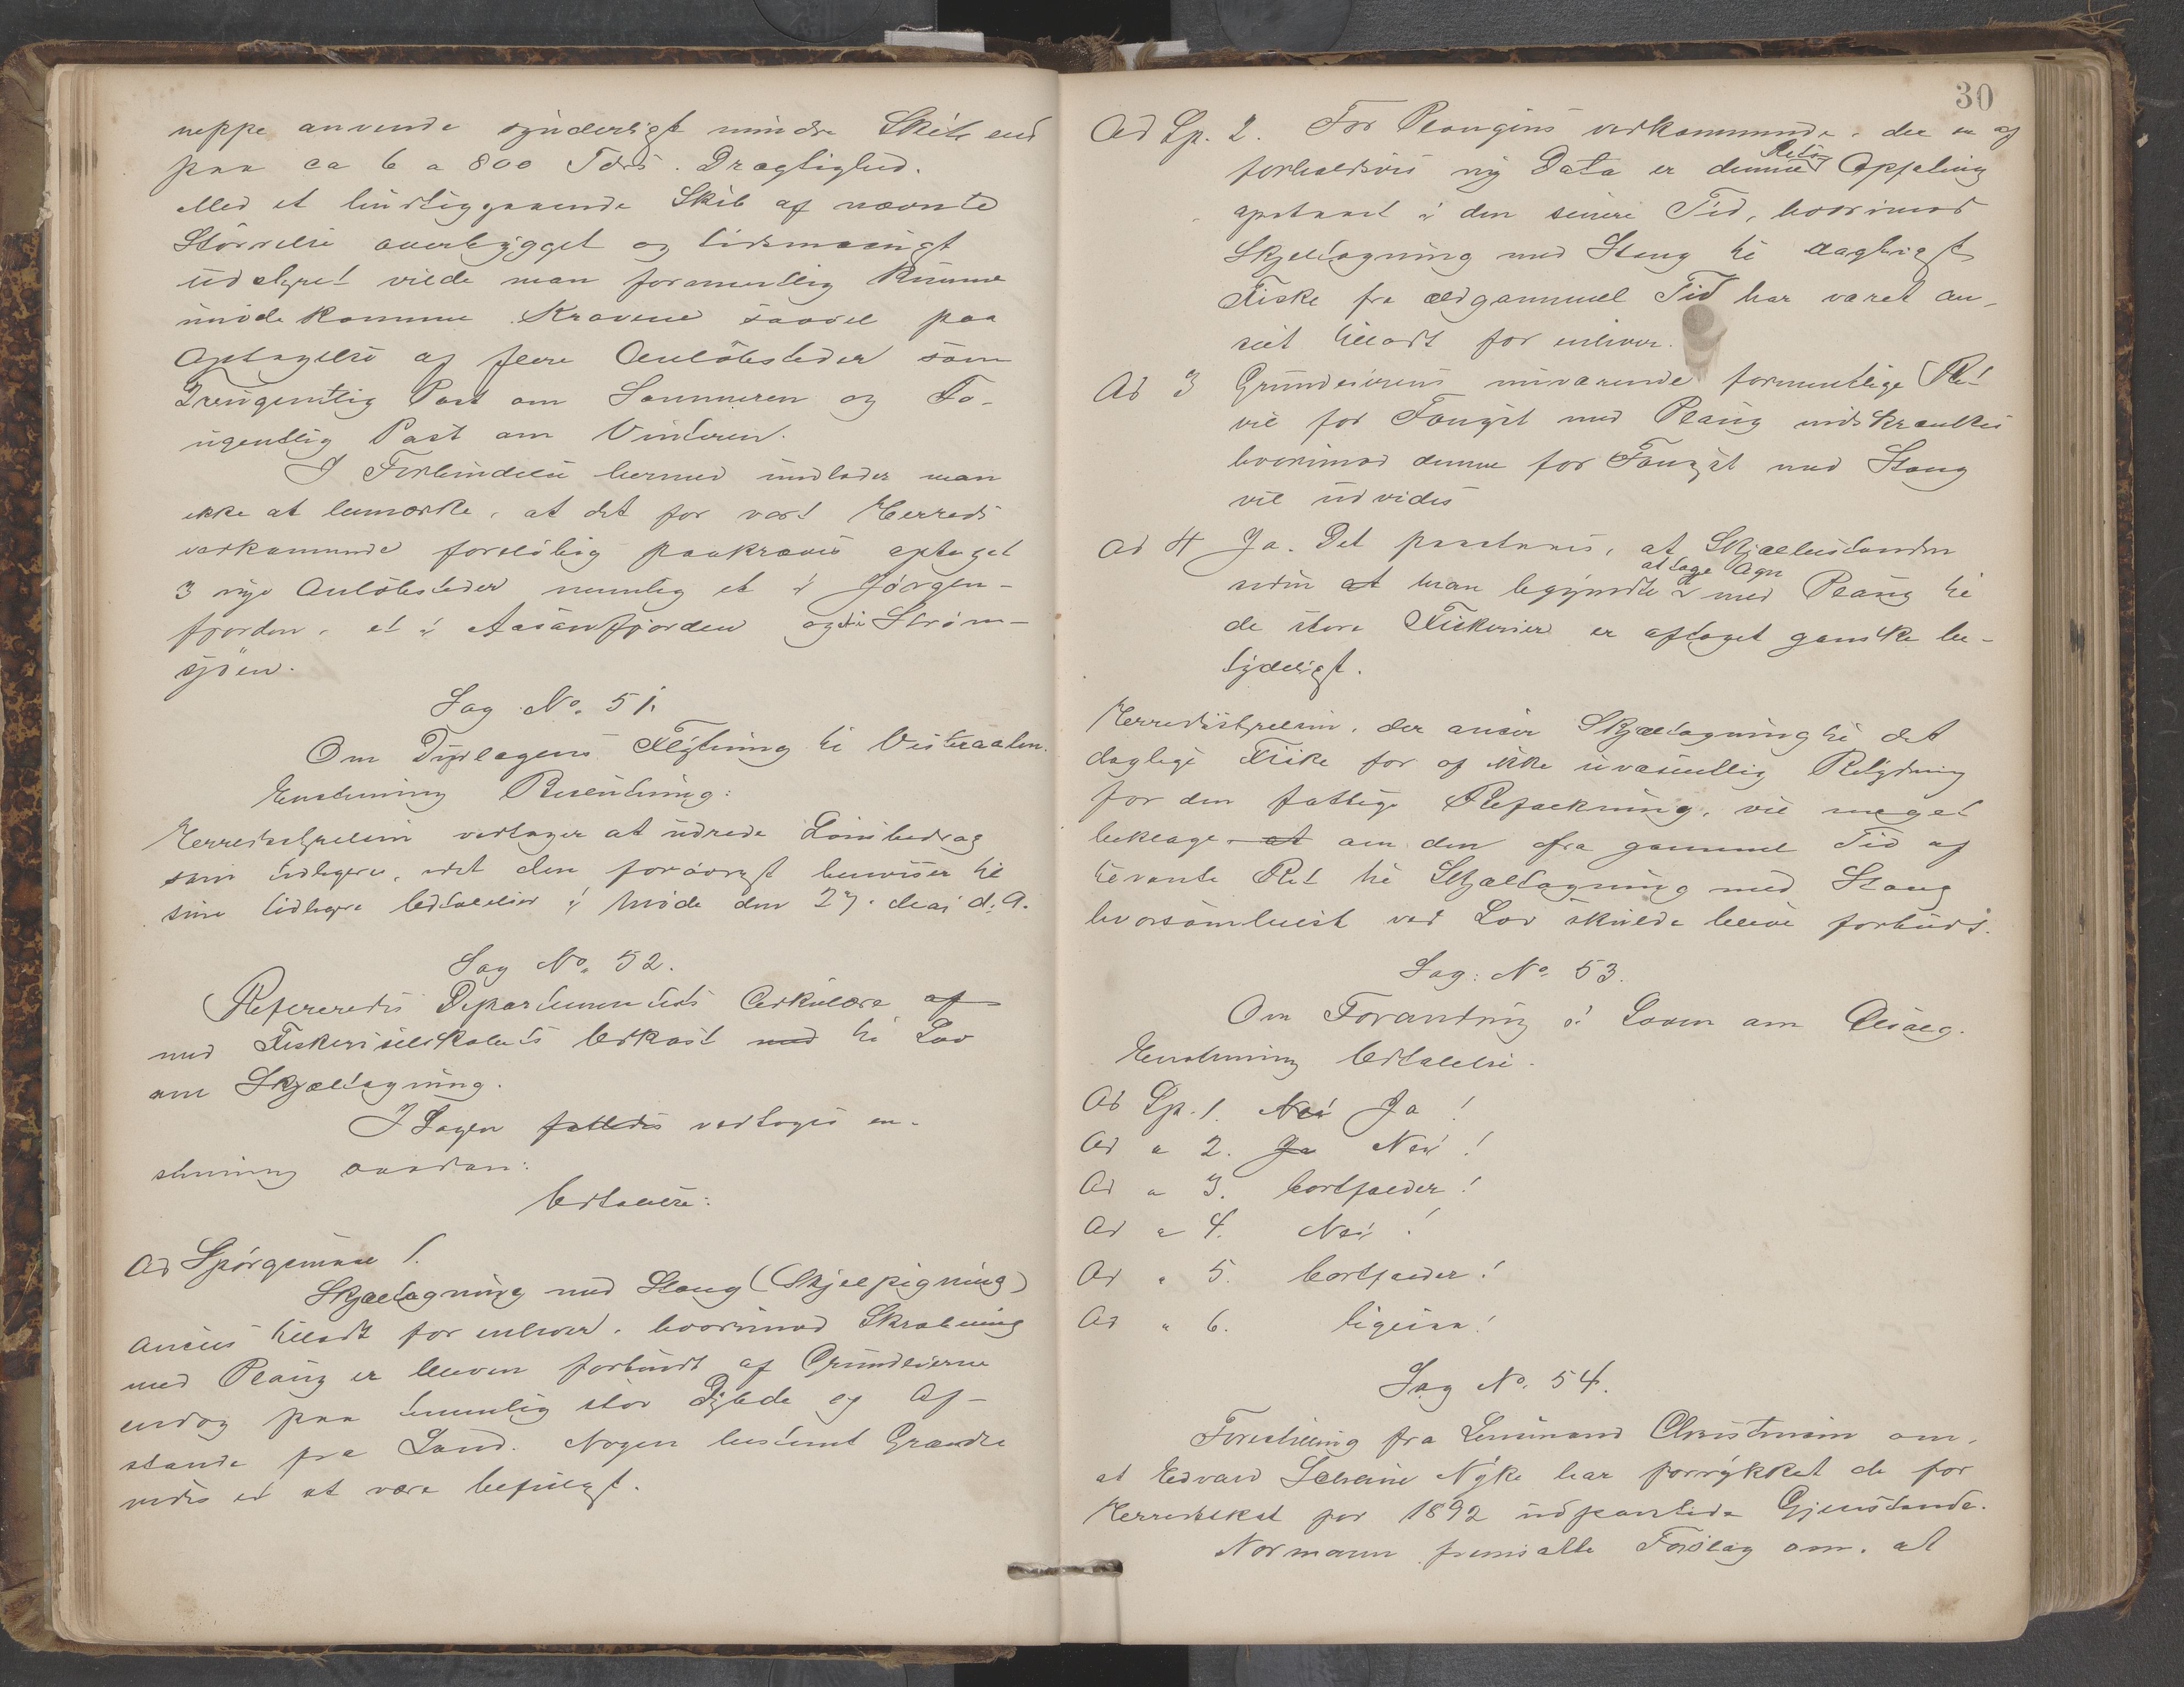 neppe anvende synderligt mindre Skib end
paa ca 6 a 800 Tdrs. Drægtighed.
Med et hurtiggaaende Skib af nævnte
Størrelse overbygget og tidsmæsigt
udstyret vilde man formentlig kunne
imødekomme Kravene saavel paa
Optagelse af flere Anløbsteder som
Trengentlig Post om Sommeren og To-
ugentlig Post om Vinteren.
I Forbindelse hermed undlader man
ikke at bemærke, at det for vort Herreds
vedkommende foreløbig paakræves optaget
3 nye Anløbsteder nemlig et i Jørgen-
fjorden, et i Aasanfjorden og i Strøm-
sjöen.
Sag No. 51.
Om Dyrlægens Flytning til Vesteraalen.
Enstemmig Beslutning:
Herredsstyrelsen vedtager at udrede Lønsbidrag
som tidligere, idet den forøvrigt henviser til
sine tidligere Udtalelser i Møde den 27. Mai d. A.
Sag No. 52.
Refereredes Departementets Cirkulære af
med Fiskeriselskabets Udkast med til Lov
om Skjæltagning.
I Sagen fattedes vedtoges en-
stemmig saadan:
Udtalelse:
Ad Spørgsmaal 1.
Skjæltagning med Stang (Skjelpigning)
ansees tilladt for enhver, hvorimod Skrabning
med Plaug er bleven forbudt af Grundeierne
endog paa temmelig stor Dybde og Af-
stande fra Land. Nogen bestemt Grændse
vides ei at være befulgt.
30
Ad Sp. 2. For Plaugens vedkommende, der er af
forholdsvis ny Data er denne Rets Opfatning
opstaaet i den senere Tid, hvorimod
Skjeltagning med Stang til dagligt
Fiske fra ældgammel Tid har været an-
seet tilladt for enhver.
Ad 3 Grundeierens nuværende formentlige Ret
vil for Fangst med Plaug indskrænkes
hvorimod denne for Fangst med Stang
vil udvides
Ad 4 Ja. Det paastaaes, at Skjælbestanden
siden at man begyndte at tage Agn med Plaug til
de store Fiskerier er aftaget ganske be-
tydeligt.
Herredsstyrelsen, der anser Skjæltagning til det
daglige Fiske for af ikke uvæsentlig Betydning
for den fattige Befolkning, vil meget
beklage at om den fra gammel Tid af
hævdede Ret til Skjæltagning med Stang
hvorsomhelst ved Lov skulde blive forbudt.
Sag: No. 53.
Om Forandring i Loven om
Enstemmig Udtalelse.
Ad Sp. 1. Nei Ja!
Ad " 2. Ja Nei!
Ad " 3. bortfalder!
Ad " 4. Nei!
Ad " 5. bortfalder!
Ad " 6. ligesaa!
Sag No. 54.
Forestilling fra Lensmand Christensen om,
at Edvard Nyke har forrykket de for
Herredskat for 1892 udpantede Gjenstande.
Normann fremsatte Forslag om, at